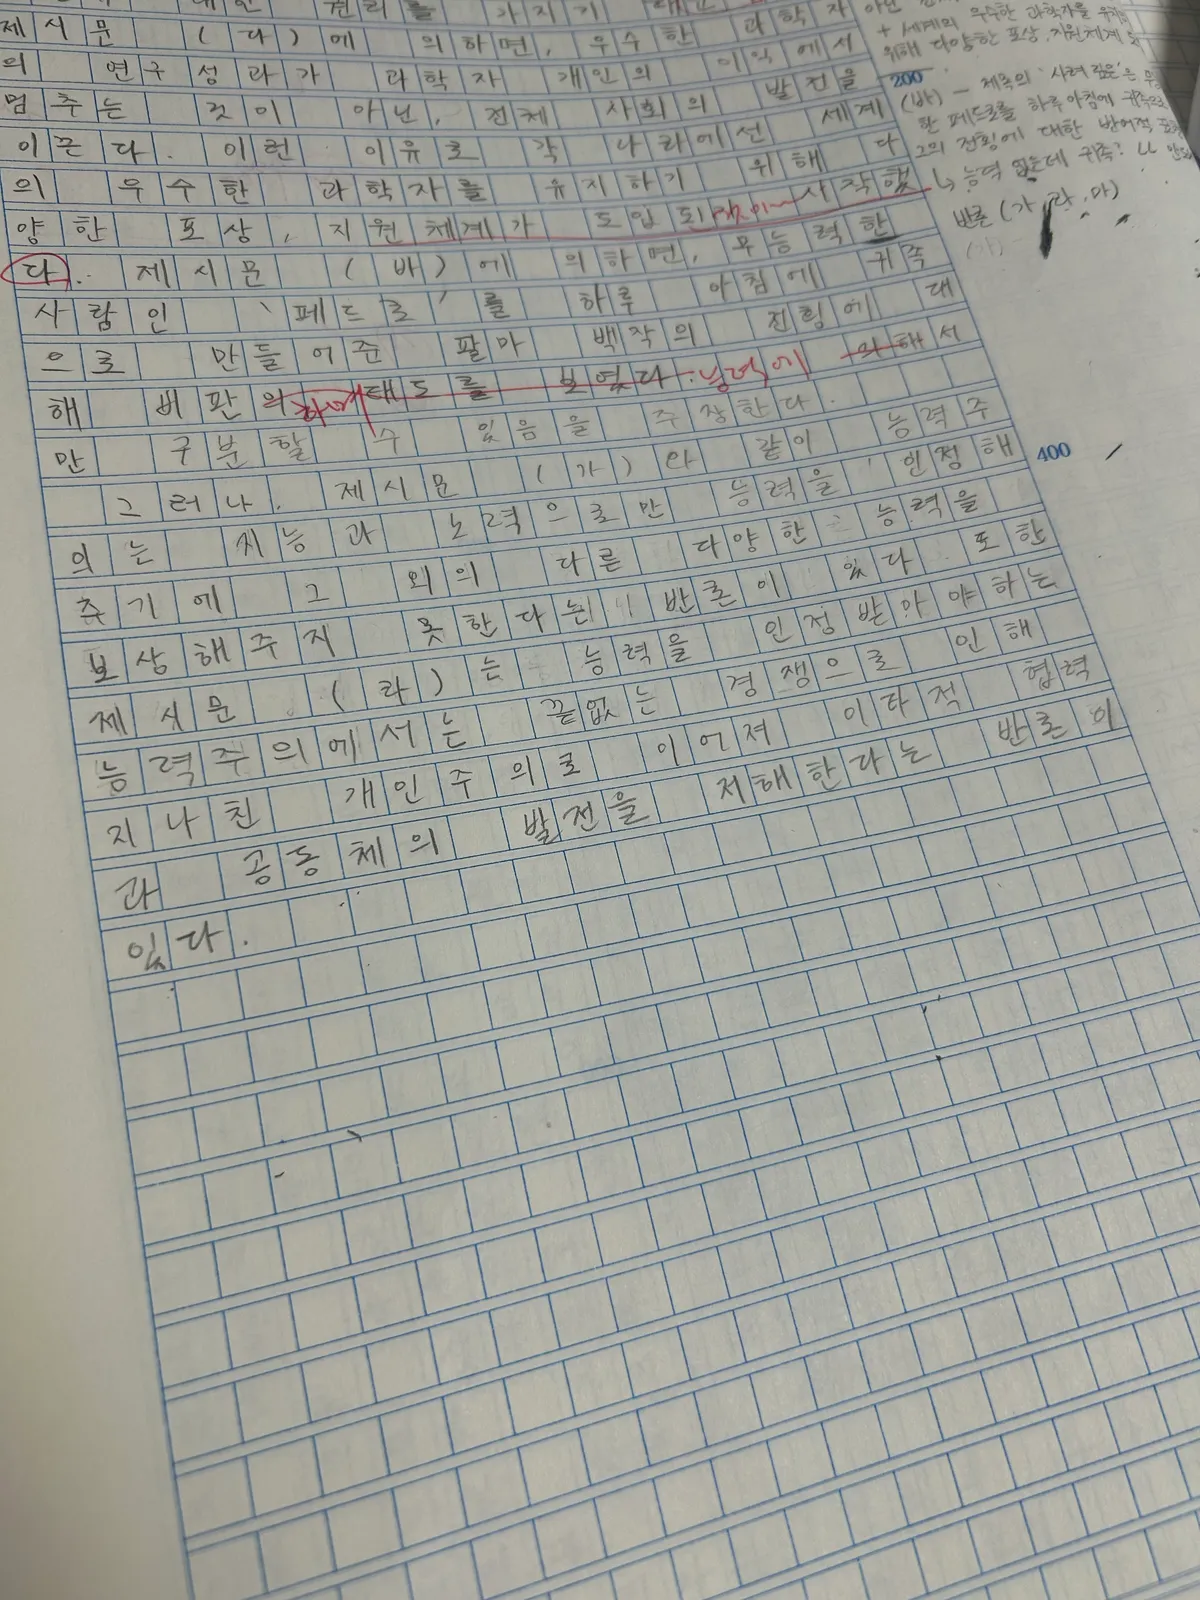 권리를 가지기
제시문 (다)에 의하면, 우수한 과학자
의 연구 성과가 과학자 개인의 이익에서
멈추는 것이 아닌, 전체 사회의 발전을
이끈다. 이런 이유로 각 나라에선 세계
의 우수한 과학자를 유지하기 위해 다
양한 포상, 지원 체계가 도입된 것이 시작했
다. 제시문 (바)에 의하면, 무능력한
사람인 '페드로'를 하루 아침에 귀족
으로 만들어준 팔마 백작의 전횡에 대
해 비판의 태도를 보였다. 능력에 의해서
만 구분할 수 있음을 주장한다.
그러나, 제시문 (가)와 같이 능력주
의는 지능과 노력으로만 능력을 인정해
주기에 그 외의 다른 다양한 능력을
보상해주지 못한다는 반론이 있다. 또한
제시문 (라)는 능력을 인정받아야하는
능력주의에서는 끝없는 경쟁으로 인해
지나친 개인주의로 이어져 이타적 협력
과 공동체의 발전을 저해한다는 반론이
있다.
+ 세계의 우수한 과학자를 유지
위해 다양한 포상, 지원체계
200
(바) - 제족의 '사려 깊은'은
한 페드로를 하루 아침에 귀족으로
그의 전횡에 대한 방어적
↳ 능력 없는데 귀족?
반론 (가, 라, 마)
(가)
400